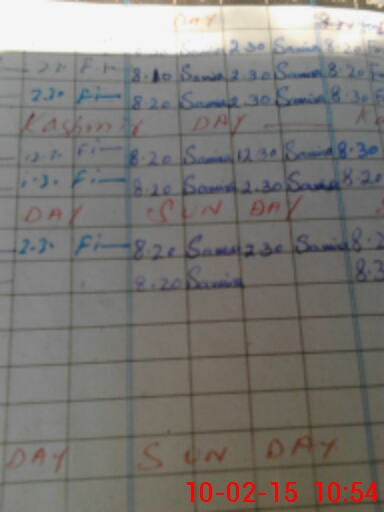 DAY
8.20 Samia 2.30 Samia 8.20
2.30 Fi 8.10 Samia 2.30 Samia 8.20
2.30 Fi 8.20 Samia 2.30 Samia 8.30
Kashmir DAY
12.30 Fi 8.20 Samia 12.30 Samia 8.30
1.30 Fi 8.20 Samia 2.30 Samia 8.20
DAY SUN DAY
2.30 Fi 8.20 Samia 2.30 Samia
8.20 Samia
DAY SUN DAY
10-02-15 10:54